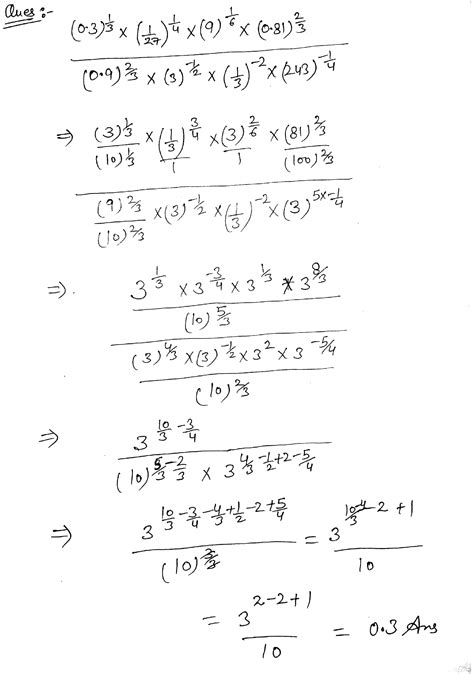 Ques :-
(0.3)^{1/3} × (1/27)^{1/4} × (9)^{1/6} × (0.81)^{2/3}
(0.9)^{2/3} × (3)^{-1/2} × (1/3)^{-2} × (243)^{-1/4}
⇒ (3)^{1/3}/(10)^{1/3} × (1/3)^{3/4}/1 × (3)^{2/6}/1 × (81)^{2/3}/(100)^{2/3}
(9)^{2/3}/(10)^{2/3} × (3)^{-1/2} × (1/3)^{-2} × (3)^{5×-1/4}
⇒. 3^{1/3} × 3^{-3/4} × 3^{1/3} × 3^{8/3}
(10)^{5/3}
(3)^{4/3} × (3)^{-1/2} × 3^{2} × 3^{-5/4}
(10)^{2/3}
⇒ 3^{10/3 - 3/4}
(10)^{5/3 - 2/3} × 3^{4/3 - 1/2 + 2 - 5/4}
⇒ 3^{10/3 - 3/4 - 4/3 + 1/2 - 2 + 5/4}/(10)^{3/3} = 3^{(10-4)/3 - 2 + 1}/10
= 3^{2-2+1}/10 = 0.3 Ans